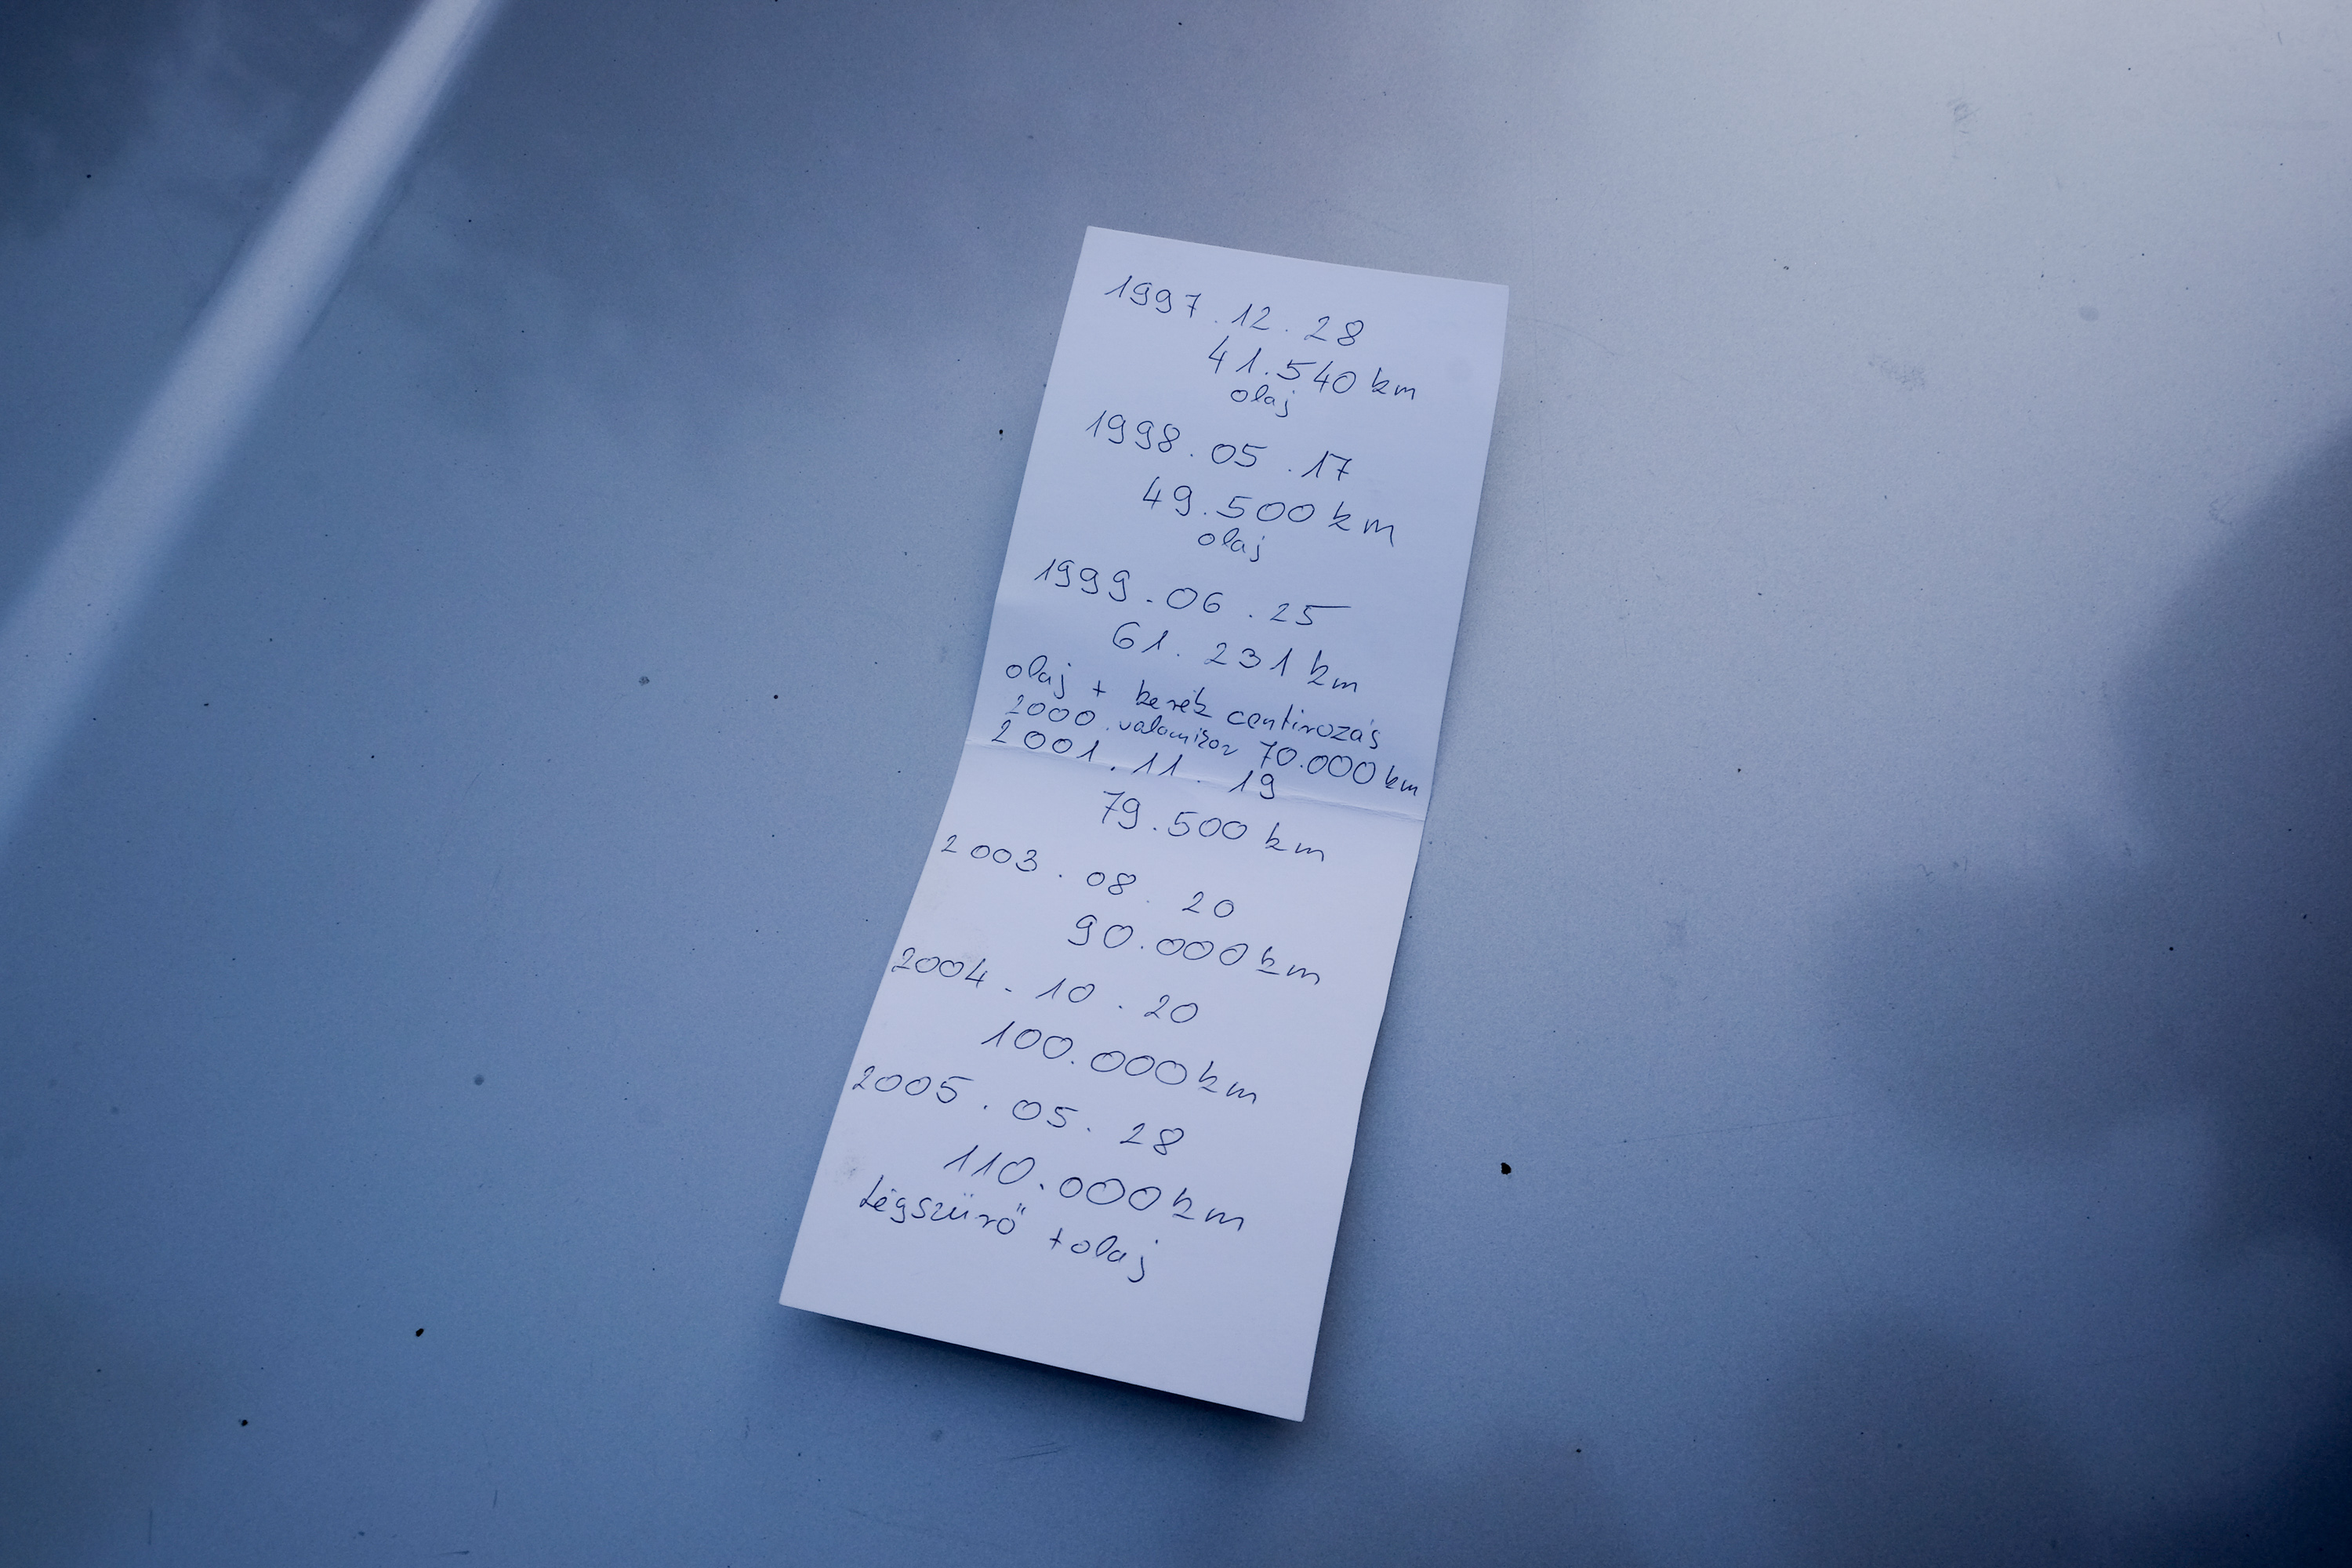 1997.12.28
41.540 km
olaj
1998.05.17
49.500 km
olaj
1999.06.25
61.231 km
olaj + kerék centirozás
2000. valamikor 70.000 km
2001.11.19
79.500 km
2003.08.20
90.000 km
2004.10.20
100.000 km
2005.05.28
110.000 km
Légszürő + olaj